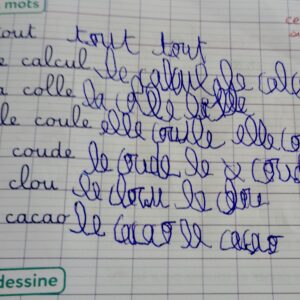 mots
tout tout
calcul le calcul le calc
colle la colle
le coule elle coule elle co
coude le coude le coud
clou le clou le clou
cacao le cacao le cacao
dessine